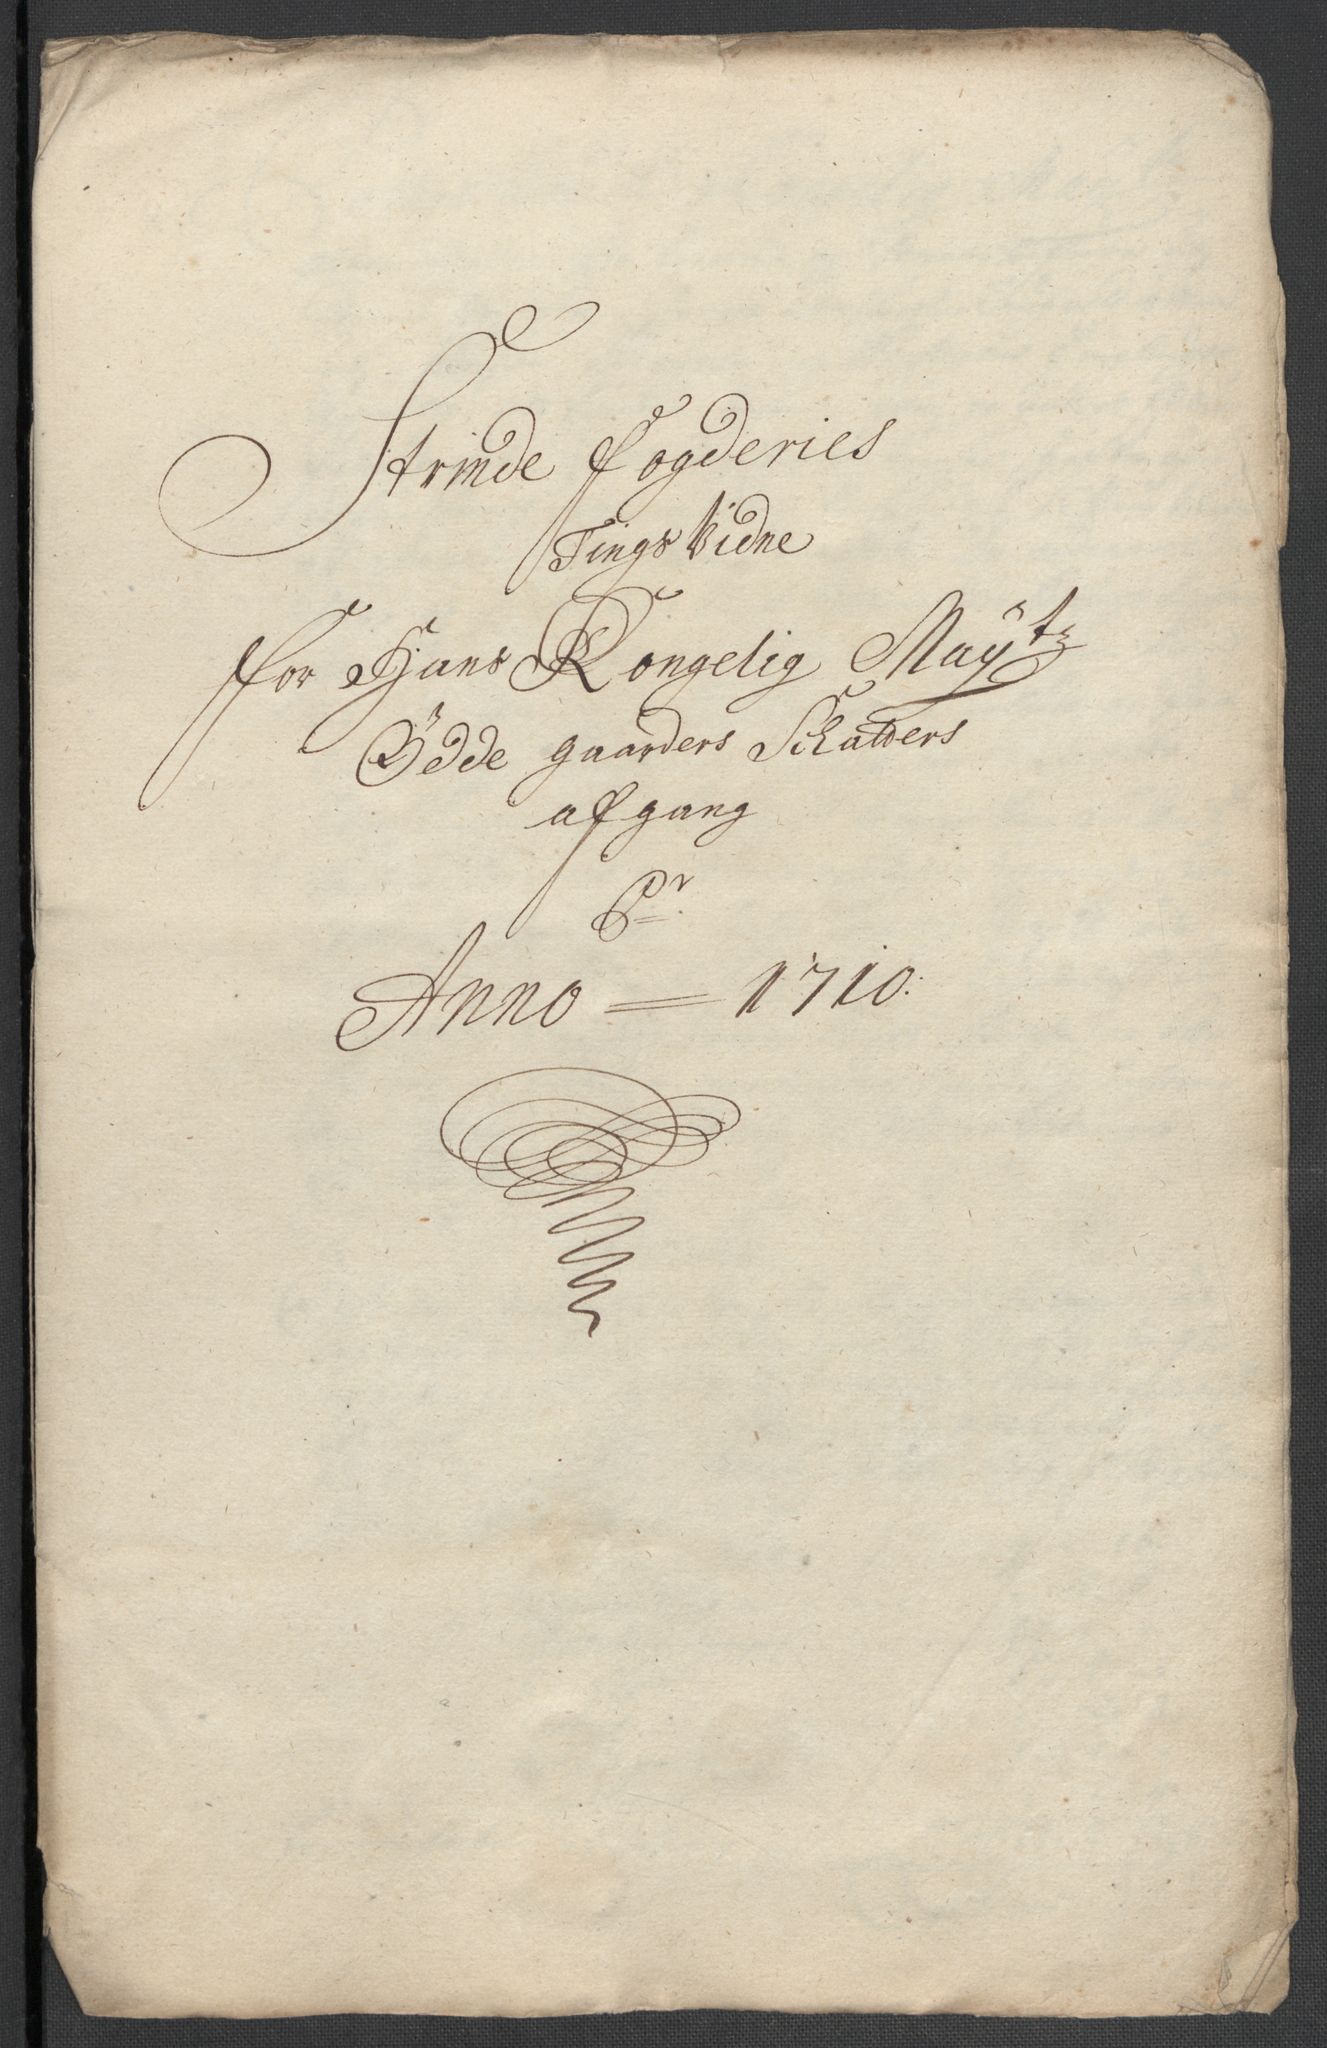 Strinde fogderies
Tings Vidne
for Hans Kongelig Mayts
Ödde gaarders Skatters
afgang
Pr
Anno = 1710.